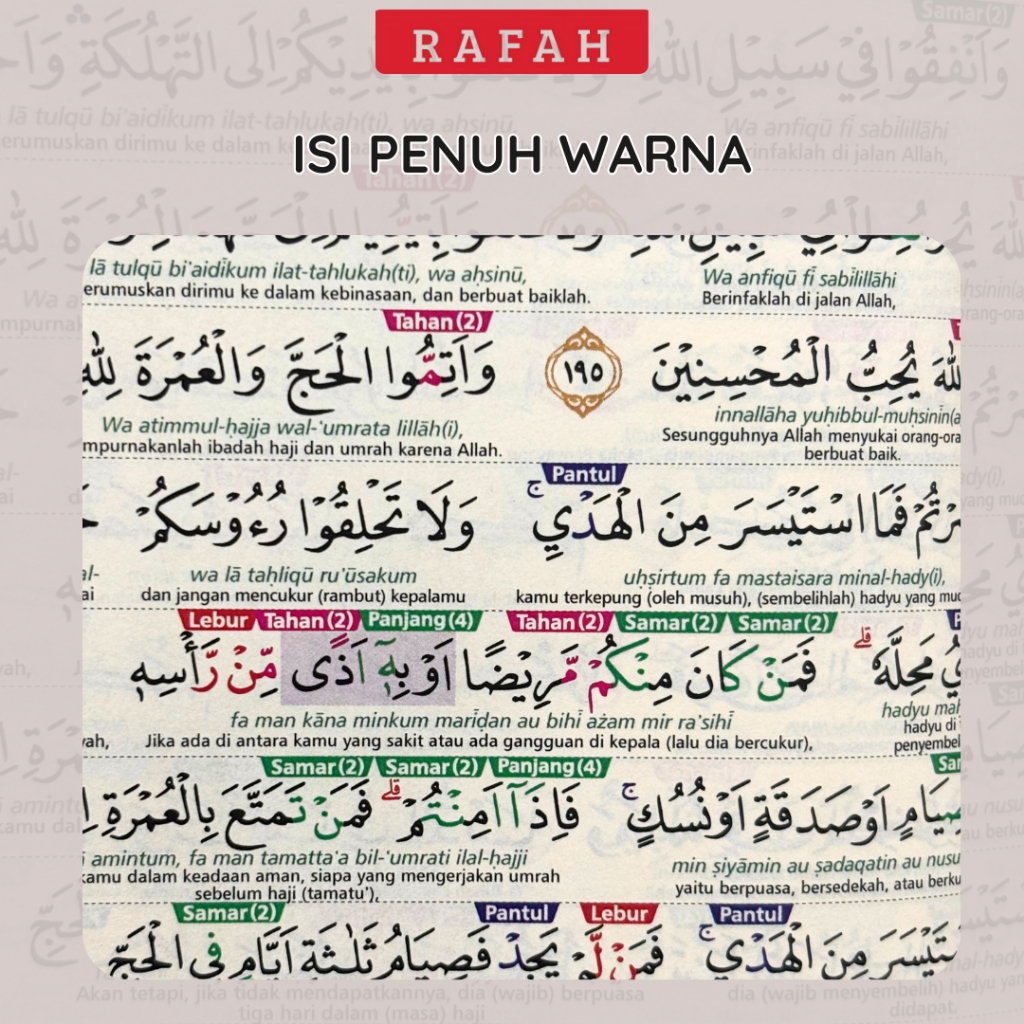 RAFAH
ISI PENUH WARNA
Wa anfiqū fī sabīlillāhi lā tulqū bi'aidīkum ilat-tahlukah(ti), wa aḥsinū,
Berinfaklah di jalan Allah, erumuskan dirimu ke dalam kebinasaan, dan berbuat baiklah.
Tahan (2)
يُحِبُّ الْمُحْسِنِيْنَ ١٩٥ وَاَتِمُّوا الْحَجَّ وَالْعُمْرَةَ لِلّٰهِ
innallāha yuḥibbul-muḥsinīn(a Wa atimmul-ḥajja wal-'umrata lillāh(i),
Sesungguhnya Allah menyukai orang-ora mpurnakanlah ibadah haji dan umrah karena Allah.
berbuat baik.
Pantul
فَمَا اسْتَيْسَرَ مِنَ الْهَدْيِۚ وَلَا تَحْلِقُوْا رُءُوْسَكُمْ
uḥṣirtum fa mastaisara minal-hady(i), wa lā taḥliqū ru'ūsakum
kamu terkepung (oleh musuh), (sembelihlah) hadyu yang mud dan jangan mencukur (rambut) kepalamu
Samar (2) Samar (2) Tahan (2) Panjang (4) Tahan (2) Lebur
مَحِلَّهٗۗ فَمَنْ كَانَ مِنْكُمْ مَّرِيْضًا اَوْ بِهٖٓ اَذًى مِّنْ رَّأْسِهٖ
hadyu mah fa man kāna minkum marīḍan au bihī ażam mir ra'sihī
hadyu di
penyembel Jika ada di antara kamu yang sakit atau ada gangguan di kepala (lalu dia bercukur),
Panjang (4) Samar (2) Samar (2)
صِيَامٍ اَوْ صَدَقَةٍ اَوْ نُسُكٍۚ فَاِذَآ اَمِنْتُمْۗ فَمَنْ تَمَتَّعَ بِالْعُمْرَةِ
min ṣiyāmin au ṣadaqatin au nusu amintum, fa man tamatta'a bil-'umrati ilal-ḥajji
yaitu berpuasa, bersedekah, atau berku kamu dalam keadaan aman, siapa yang mengerjakan umrah
sebelum haji (tamatu'),
Pantul Lebur Pantul Samar (2)
مِنَ الْهَدْيِۚ فَمَنْ لَّمْ يَجِدْ فَصِيَامُ ثَلٰثَةِ اَيَّامٍ فِى الْحَجِّ